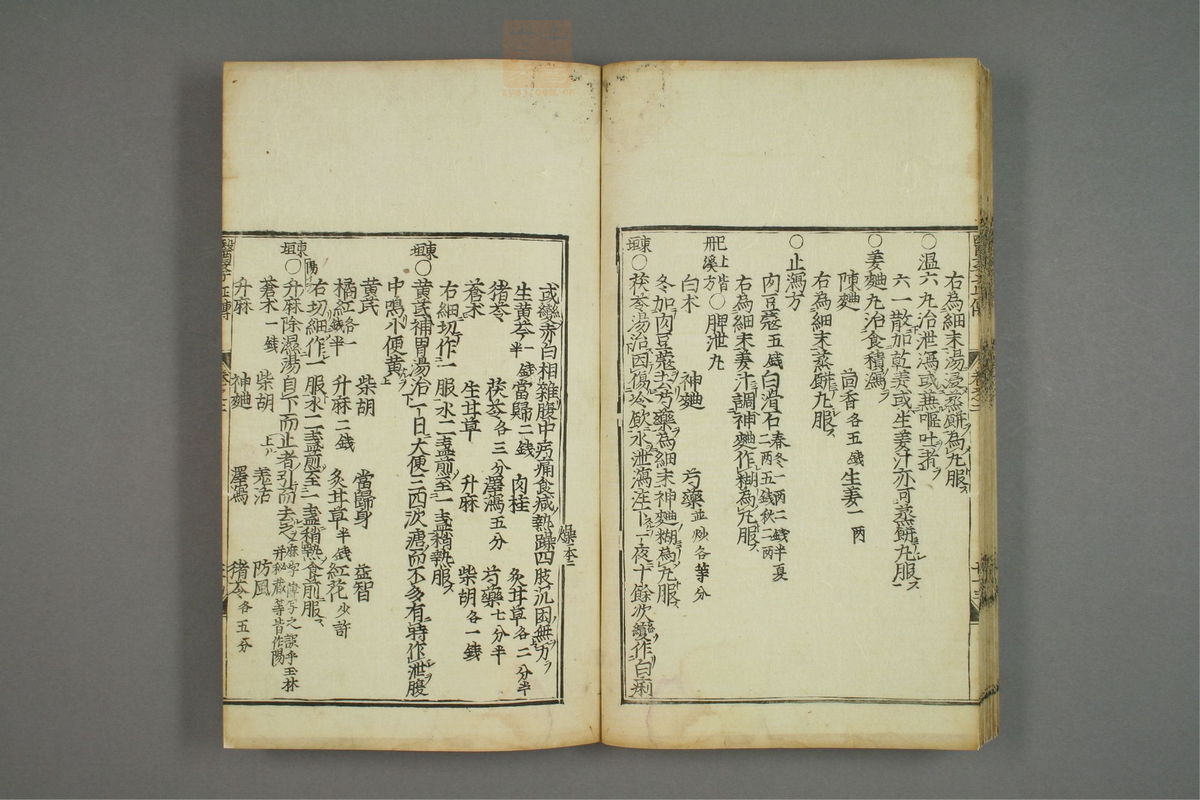 右為細末湯浸蒸餅為丸服
○温六丸治泄瀉或兼嘔吐者
六一散加乾姜或生姜汁亦可蒸餅丸服
○姜麯丸治食積瀉
陳麯 茴香各五錢 生姜一兩
右為細末蒸餅丸服
○止瀉方
肉豆蔻五錢 白滑石春冬一兩二錢半夏二兩五錢秋二兩
右為細末姜汁調神麯作糊為丸服
已上皆丹溪方○脾泄丸
白朮 神麯 芍藥並炒各等分
冬加肉豆蔻去芍藥為細末神麯糊為丸服
東垣○茯苓湯治因傷冷飲水泄瀉注下一夜十餘次變作白痢
或變赤白相雜腹中㽲痛食减熱躁四肢沉困無力
躁本
生黄芩一錢半 當歸二錢 肉桂 炙甘草各二分半
猪苓 茯苓各三分 澤瀉五分 芍藥七分半
蒼朮 生甘草 升麻 柴胡各一錢
右細切作一服水二盞煎至一盞稍熱服
東垣○黄芪補胃湯治一日大便三四次溏而不多有時作泄腹
中鳴小便黄
黄芪 柴胡 當歸身 益智
橘紅各一錢半 升麻二錢 炙甘草半錢 紅花少許
右切細作一服水二盞煎至一盞稍熱食前服
東垣○升麻除濕湯自下而止者引而去之
陽
蒼朮一錢 柴胡 羌活 防風
升麻 神麯 澤瀉 猪苓各五分